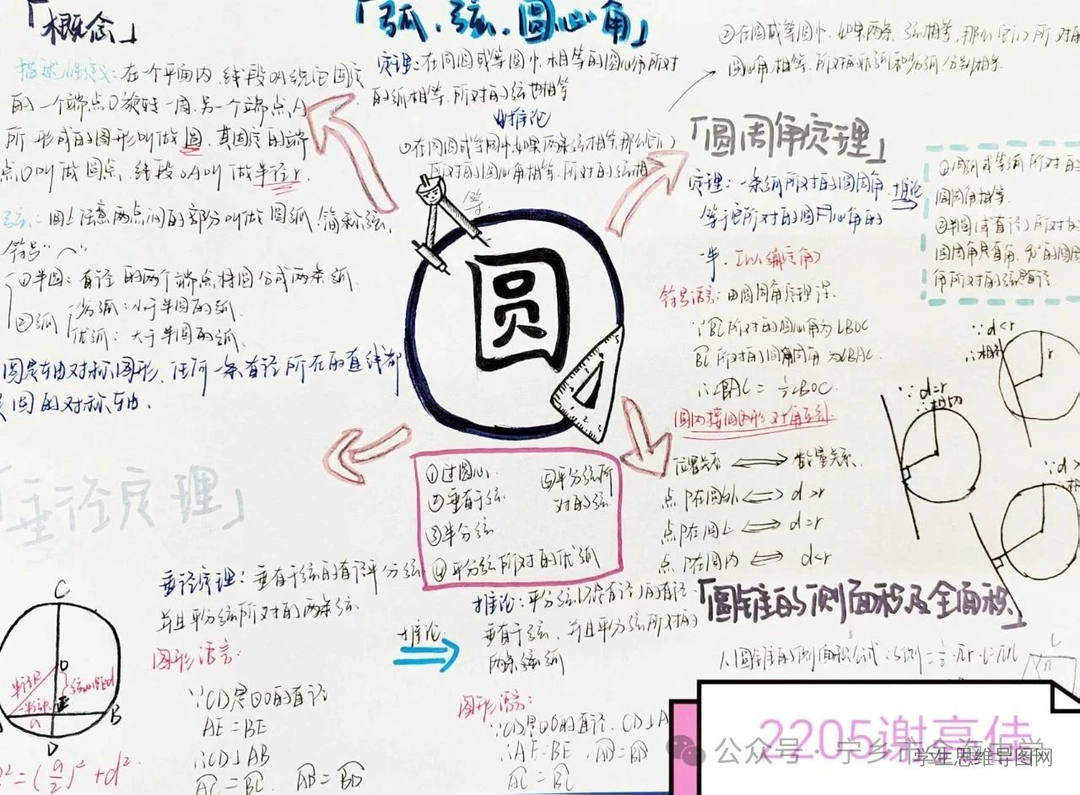 「概念」
描述性定义:在一个平面内,线段OA绕它固定
的一个端点O旋转一周,另一个端点A
所形成的图形叫做圆,其固定的端
点O叫做圆点,线段OA叫做半径r.
圆上任意两点间的部分叫做圆弧,简称弦,
符号"⌒"
①半圆:直径的两个端点将圆分成两条弧
②弧
劣弧:小于半圆的弧.
优弧:大于半圆的弧.
圆是轴对称图形,任何一条直径所在的直线都
是圆的对称轴.
「弧、弦、圆心角」
定理:在同圆或等圆中,相等的圆心角所对
的弧相等,所对的弦也相等
推论
①在同圆或等圆中,如果两条弧相等,那么它们
所对的圆心角相等,所对的弦相
等
②在同圆或等圆中,如果两条弦相等,那么它们所对的
圆心角相等,所对的
「圆周角定理」
定理:一条弧所对的圆周角
等于它所对的圆心角的
一半.
推论
圆周角相等.
②半圆(或直径)所对的
圆周角是直角,90°的圆周
角所对的弦是直径
符号语言:由圆周角定理得
∵BC所对的圆心角为∠BOC
BC所对的圆周角为∠BAC.
=½∠BOC
圆内接四边形对角互补
位置关系 ⟷ 数量关系.
点P在圆外 ⟺ d>r
点P在圆上 ⟺ d=r
点P在圆内 ⟺ d<r
∵d<r
r
∵d=r
∴相切
∵d>
圆
①过圆心
②垂直于弦
③平分弦
④平分弦所对的优弧
⑤平分弦所
对的
「垂径定理」
垂径定理:垂直于弦的直径平分弦
并且平分弦所对的两条弦.
图形语言:
∵CD是⊙O的直径
AE=BE
∴CD⊥AB
AC=BC AD=BD
推论
推论:平分弦(不是直径)的直径
垂直于弦,并且平分弦所对的
两条
图形语言:
∵CD是⊙O的直径,CD⊥A
∴AE=BE, AD=BD
AC=BC
C
O
半径R
弦心距d
E
B
D
²=(a/2)²+d²
「圆锥的侧面积及全面积」
1.圆锥的侧面积公式:S侧=½·2πr·l=πrl
2205谢亮佳
公众号·宁乡市
学生思维导图网